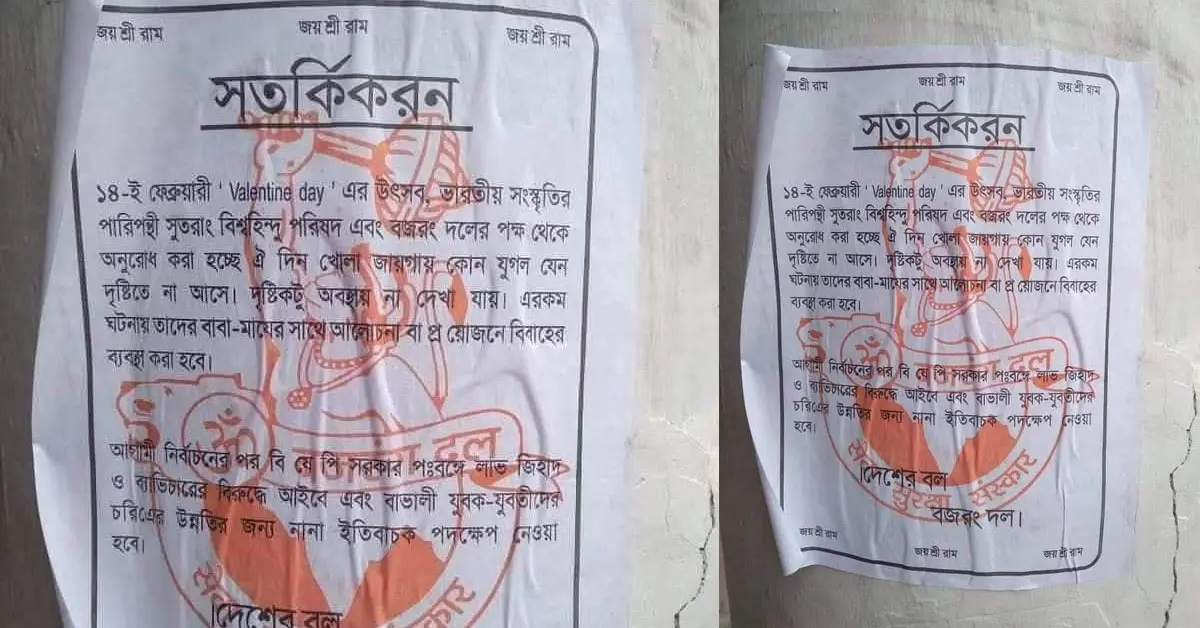 জয় শ্রী রাম জয় শ্রী রাম জয় শ্রী রাম
সতর্কিকরন
১৪-ই ফেব্রুয়ারী ' Valentine day ' এর উৎসব, ভারতীয় সংস্কৃতির
পারিপন্থী সুতরাং বিশ্বহিন্দু পরিষদ এবং বজরং দলের পক্ষ থেকে
অনুরোধ করা হচ্ছে ঐ দিন খোলা জায়গায় কোন যুগল যেন
দৃষ্টিতে না আসে। দৃষ্টিকটু অবস্থায় না দেখা যায়। এরকম
ঘটনায় তাদের বাবা-মায়ের সাথে আলোচনা বা প্র য়োজনে বিবাহের
ব্যবস্থা করা হবে।
আগামী নির্বাচনের পর বি যে পি সরকার পঃবঙ্গে লাভ জিহাদ
ও ব্যাভিচারের বিরুদ্ধে আইবে এবং বাঙালী যুবক-যুবতীদের
চরিত্রের উন্নতির জন্য নানা ইতিবাচক পদক্ষেপ নেওয়া
হবে।
ॐ
बजरंग दल
संस्कार
দেশের বল
জয় শ্রী রাম জয় শ্রী রাম জয় শ্রী রাম
সতর্কিকরন
১৪-ই ফেব্রুয়ারী ' Valentine day ' এর উৎসব, ভারতীয় সংস্কৃতির
পারিপন্থী সুতরাং বিশ্বহিন্দু পরিষদ এবং বজরং দলের পক্ষ থেকে
অনুরোধ করা হচ্ছে ঐ দিন খোলা জায়গায় কোন যুগল যেন
দৃষ্টিতে না আসে। দৃষ্টিকটু অবস্থায় না দেখা যায়। এরকম
ঘটনায় তাদের বাবা-মায়ের সাথে আলোচনা বা প্র য়োজনে বিবাহের
ব্যবস্থা করা হবে।
আগামী নির্বাচনের পর বি যে পি সরকার পঃবঙ্গে লাভ জিহাদ
ও ব্যাভিচারের বিরুদ্ধে আইবে এবং বাঙালী যুবক-যুবতীদের
চরিত্রের উন্নতির জন্য নানা ইতিবাচক পদক্ষেপ নেওয়া
হবে।
ॐ
बजरंग दल
सुरक्षा संस्कार
দেশের বল
বজরং দল।
জয় শ্রী রাম জয় শ্রী রাম জয় শ্রী রাম